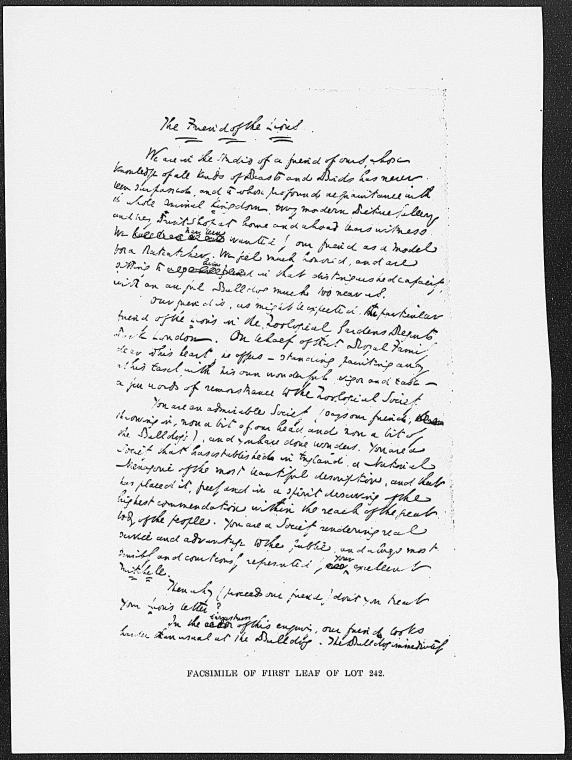 The Friend of the Lions.
We are in the Studio of a friend of ours, whose
knowledge of all kinds of Beasts and Birds has never
been surpassed, and to whose profound acquaintance with
the whole Animal Kingdom, every modern Picture Gallery
and every Print-Shop at home and abroad bears witness.
We have been wanted by our friend as a model
for a Rat-catcher. We feel much honored, and are
sitting to him in that distinguished capacity,
with an awful Bulldog much too near us.
Our friend is, as might be expected, the particular
friend of the Lions in the Zoological Gardens Regents
Park London. On behalf of that Royal Family
dear to his heart, he offers – standing painting away
at his easel, with his own wonderful vigor and ease –
a few words of remonstrance to the Zoological Society
You are an admirable Society (says our friend,
throwing in, now a bit of our head, and now a bit of
the Bulldog's), and you have done wonders. You are a
Society that has established in England, a National
Menagerie of the most beautiful description, and that
has placed it, freely and in a spirit deserving of the
highest commendation within the reach of the great
body of the people. You are a Society rendering real
service and advantage to the public, and always most
sensibly and courteously represented by your excellent
Mitchell.
Then why (proceeds our friend) don't you treat
your Lions better?
In the earnestness of this enquiry, our friend looks
harder than usual at the Bulldog. The Bulldog immediately
FACSIMILE OF FIRST LEAF OF LOT 242.